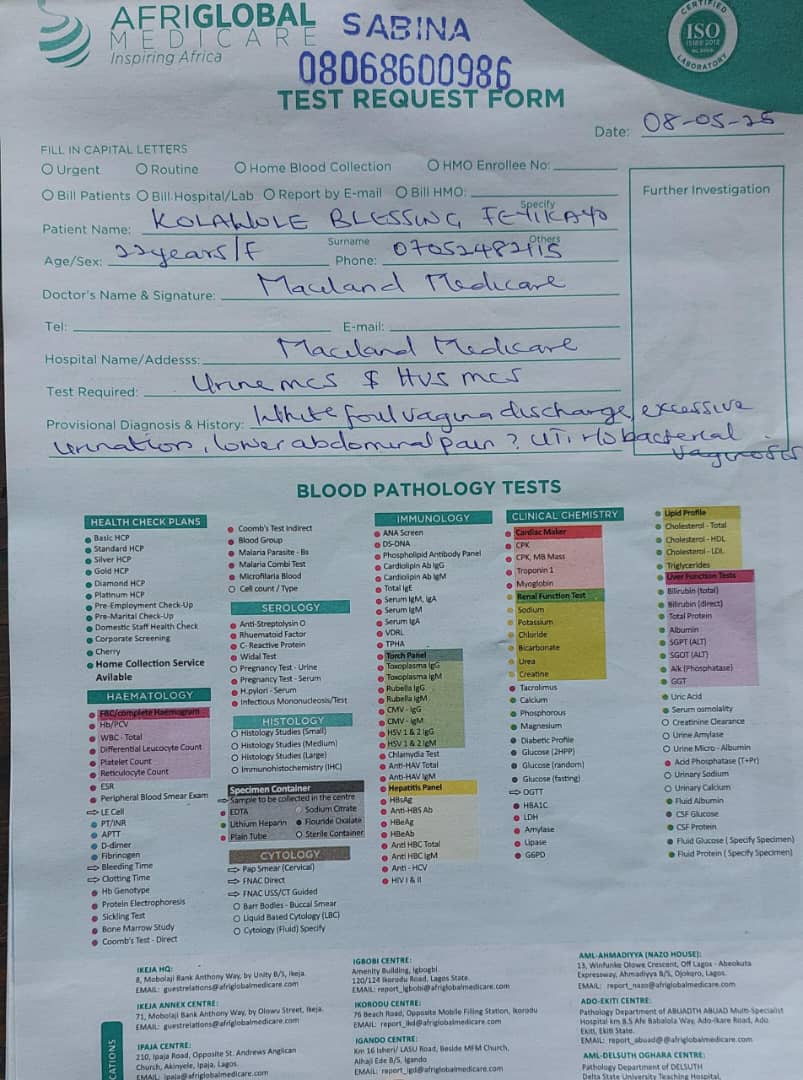 AFRIGLOBAL
MEDICARE
Inspiring Africa
SABINA
08068600986
CERTIFIED
ISO
15189 2012
LABORATORY
TEST REQUEST FORM
Date: 08-05-25
FILL IN CAPITAL LETTERS
Urgent Routine Home Blood Collection HMO Enrollee No:
Bill Patients Bill Hospital/Lab Report by E-mail Bill HMO:
Specify
Further Investigation
Patient Name: KOLAWOLE BLESSING
Surname Others
Age/Sex: 22years/F Phone: 07052482115
Doctor's Name & Signature: Maceland Medicare
Tel: E-mail:
Hospital Name/Addesss: Maceland Medicare
Test Required: Urine mcs & HVS mcs
Provisional Diagnosis & History: White foul vagina discharge, excessive
urination, lower abdominal pain ? UTI r/o bacterial
vaginosis
BLOOD PATHOLOGY TESTS
HEALTH CHECK PLANS
Basic HCP
Standard HCP
Silver HCP
Gold HCP
Diamond HCP
Platinum HCP
Pre-Employment Check-Up
Pre-Marital Check-Up
Domestic Staff Health Check
Corporate Screening
Cherry
Home Collection Service
Avilable
HAEMATOLOGY
FBC/complete Haemogram
Hb/PCV
WBC - Total
Differential Leucocyte Count
Platelet Count
Reticulocyte Count
ESR
Peripheral Blood Smear Exam
LE Cell
PT/INR
APTT
D-dimer
Fibrinogen
Bleeding Time
Clotting Time
Hb Genotype
Protein Electrophoresis
Sickling Test
Bone Marrow Study
Coomb's Test - Direct
Coomb's Test Indirect
Blood Group
Malaria Parasite - Bs
Malaria Combi Test
Microfilaria Blood
Cell count / Type
SEROLOGY
Anti-Streptolysin O
Rhuematoid Factor
C- Reactive Protein
Widal Test
Pregnancy Test - Urine
Pregnancy Test - Serum
H.pylori - Serum
Infectious Mononucleosis/Test
HISTOLOGY
Histology Studies (Small)
Histology Studies (Medium)
Histology Studies (Large)
Immunohistochemistry (IHC)
Specimen Container
Sample to be collected in the centre
EDTA Sodium Citrate
Lithium Heparin Flouride Oxalate
Plain Tube Sterile Container
CYTOLOGY
Pap Smear (Cervical)
FNAC Direct
FNAC USS/CT Guided
Barr Bodies - Buccal Smear
Liquid Based Cytology (LBC)
Cytology (Fluid) Specify
IMMUNOLOGY
ANA Screen
DS-DNA
Phospholipid Antibody Panel
Cardiolipin Ab IgG
Cardiolipin Ab IgM
Total IgE
Serum IgM, IgA
Serum IgM
Serum IgA
VDRL
TPHA
Torch Panel
Toxoplasma IgG
Toxoplasma IgM
Rubella IgG
Rubella IgM
CMV - IgG
CMV - IgM
HSV 1 & 2 IgG
HSV 1 & 2 IgM
Chlamydia Test
Anti-HAV Total
Anti-HAV IgM
Hepatitis Panel
HBsAg
Anti-HBS Ab
HBeAg
HBeAb
Anti HBC Total
Anti HBC IgM
Anti - HCV
HIV I & II
CLINICAL CHEMISTRY
Cardiac Maker
CPK
CPK, MB Mass
Troponin 1
Myoglobin
Renal Function Test
Sodium
Potassium
Chloride
Bicarbonate
Urea
Creatine
Tacrolimus
Calcium
Phosphorous
Magnesium
Diabetic Profile
Glucose (2HPP)
Glucose (random)
Glucose (fasting)
OGTT
HBA1C
LDH
Amylase
Lipase
G6PD
Lipid Profile
Cholesterol - Total
Cholesterol - HDL
Cholesterol - LDL
Triglycerides
Liver Function Tests
Bilirubin (total)
Bilirubin (direct)
Total Protein
Albumin
SGPT (ALT)
SGOT (ALT)
Alk (Phosphatase)
GGT
Uric Acid
Serum osmolality
Creatinine Clearance
Urine Amylase
Urine Micro - Albumin
Acid Phosphatase (T+Pr)
Urinary Sodium
Urinary Calcium
Fluid Albumin
CSF Glucose
CSF Protein
Fluid Glucose ( Specify Specimen)
Fluid Protein ( Specify Specimen)
IKEJA HQ:
8, Mobolaji Bank Anthony Way, by Unity B/S, Ikeja.
EMAIL: guestrelations@afriglobalmedicare.com
IKEJA ANNEX CENTRE:
71, Mobolaji Bank Anthony Way, by Olowu Street, Ikeja.
EMAIL: guestrelations@afriglobalmedicare.com
IPAJA CENTRE:
210, Ipaja Road, Opposite St. Andrews Anglican
Church, Akinyele, Ipaja, Lagos.
EMAIL: ipaja@afriglobalmedicare.com
IGBOBI CENTRE:
Amenity Building, Igbogbi
120/124 Ikorodu Road, Lagos State.
EMAIL: report_igbobi@afriglobalmedicare.com
IKORODU CENTRE:
76 Beach Road, Opposite Mobile Filling Station, Ikorodu
EMAIL: report_ikd@afriglobalmedicare.com
IGANDO CENTRE:
Km 16 Isheri/ LASU Road, Beside MFM Church,
Alhaji Ede B/S, Igando
EMAIL: report_igd@afriglobalmedicare.com
AML-AHMADIYYA (NAZO HOUSE):
13, Winfunke Olowe Crescent, Off Lagos - Abeokuta
Expressway, Ahmadiyya B/S, Ojokoro, Lagos.
EMAIL: report_nazo@afriglobalmedicare.com
ADO-EKITI CENTRE:
Pathology Department of ABUADTH ABUAD Multi-Specialist
Hospital km 8.5 Afe Babalola Way, Ado-Ikare Road, Ado.
Ekiti, Ekiti State.
EMAIL: report_abuad@@afriglobalmedicare.com
AML-DELSUTH OGHARA CENTRE:
Pathology Department of DELSUTH
Delta State University Teaching Hospital,